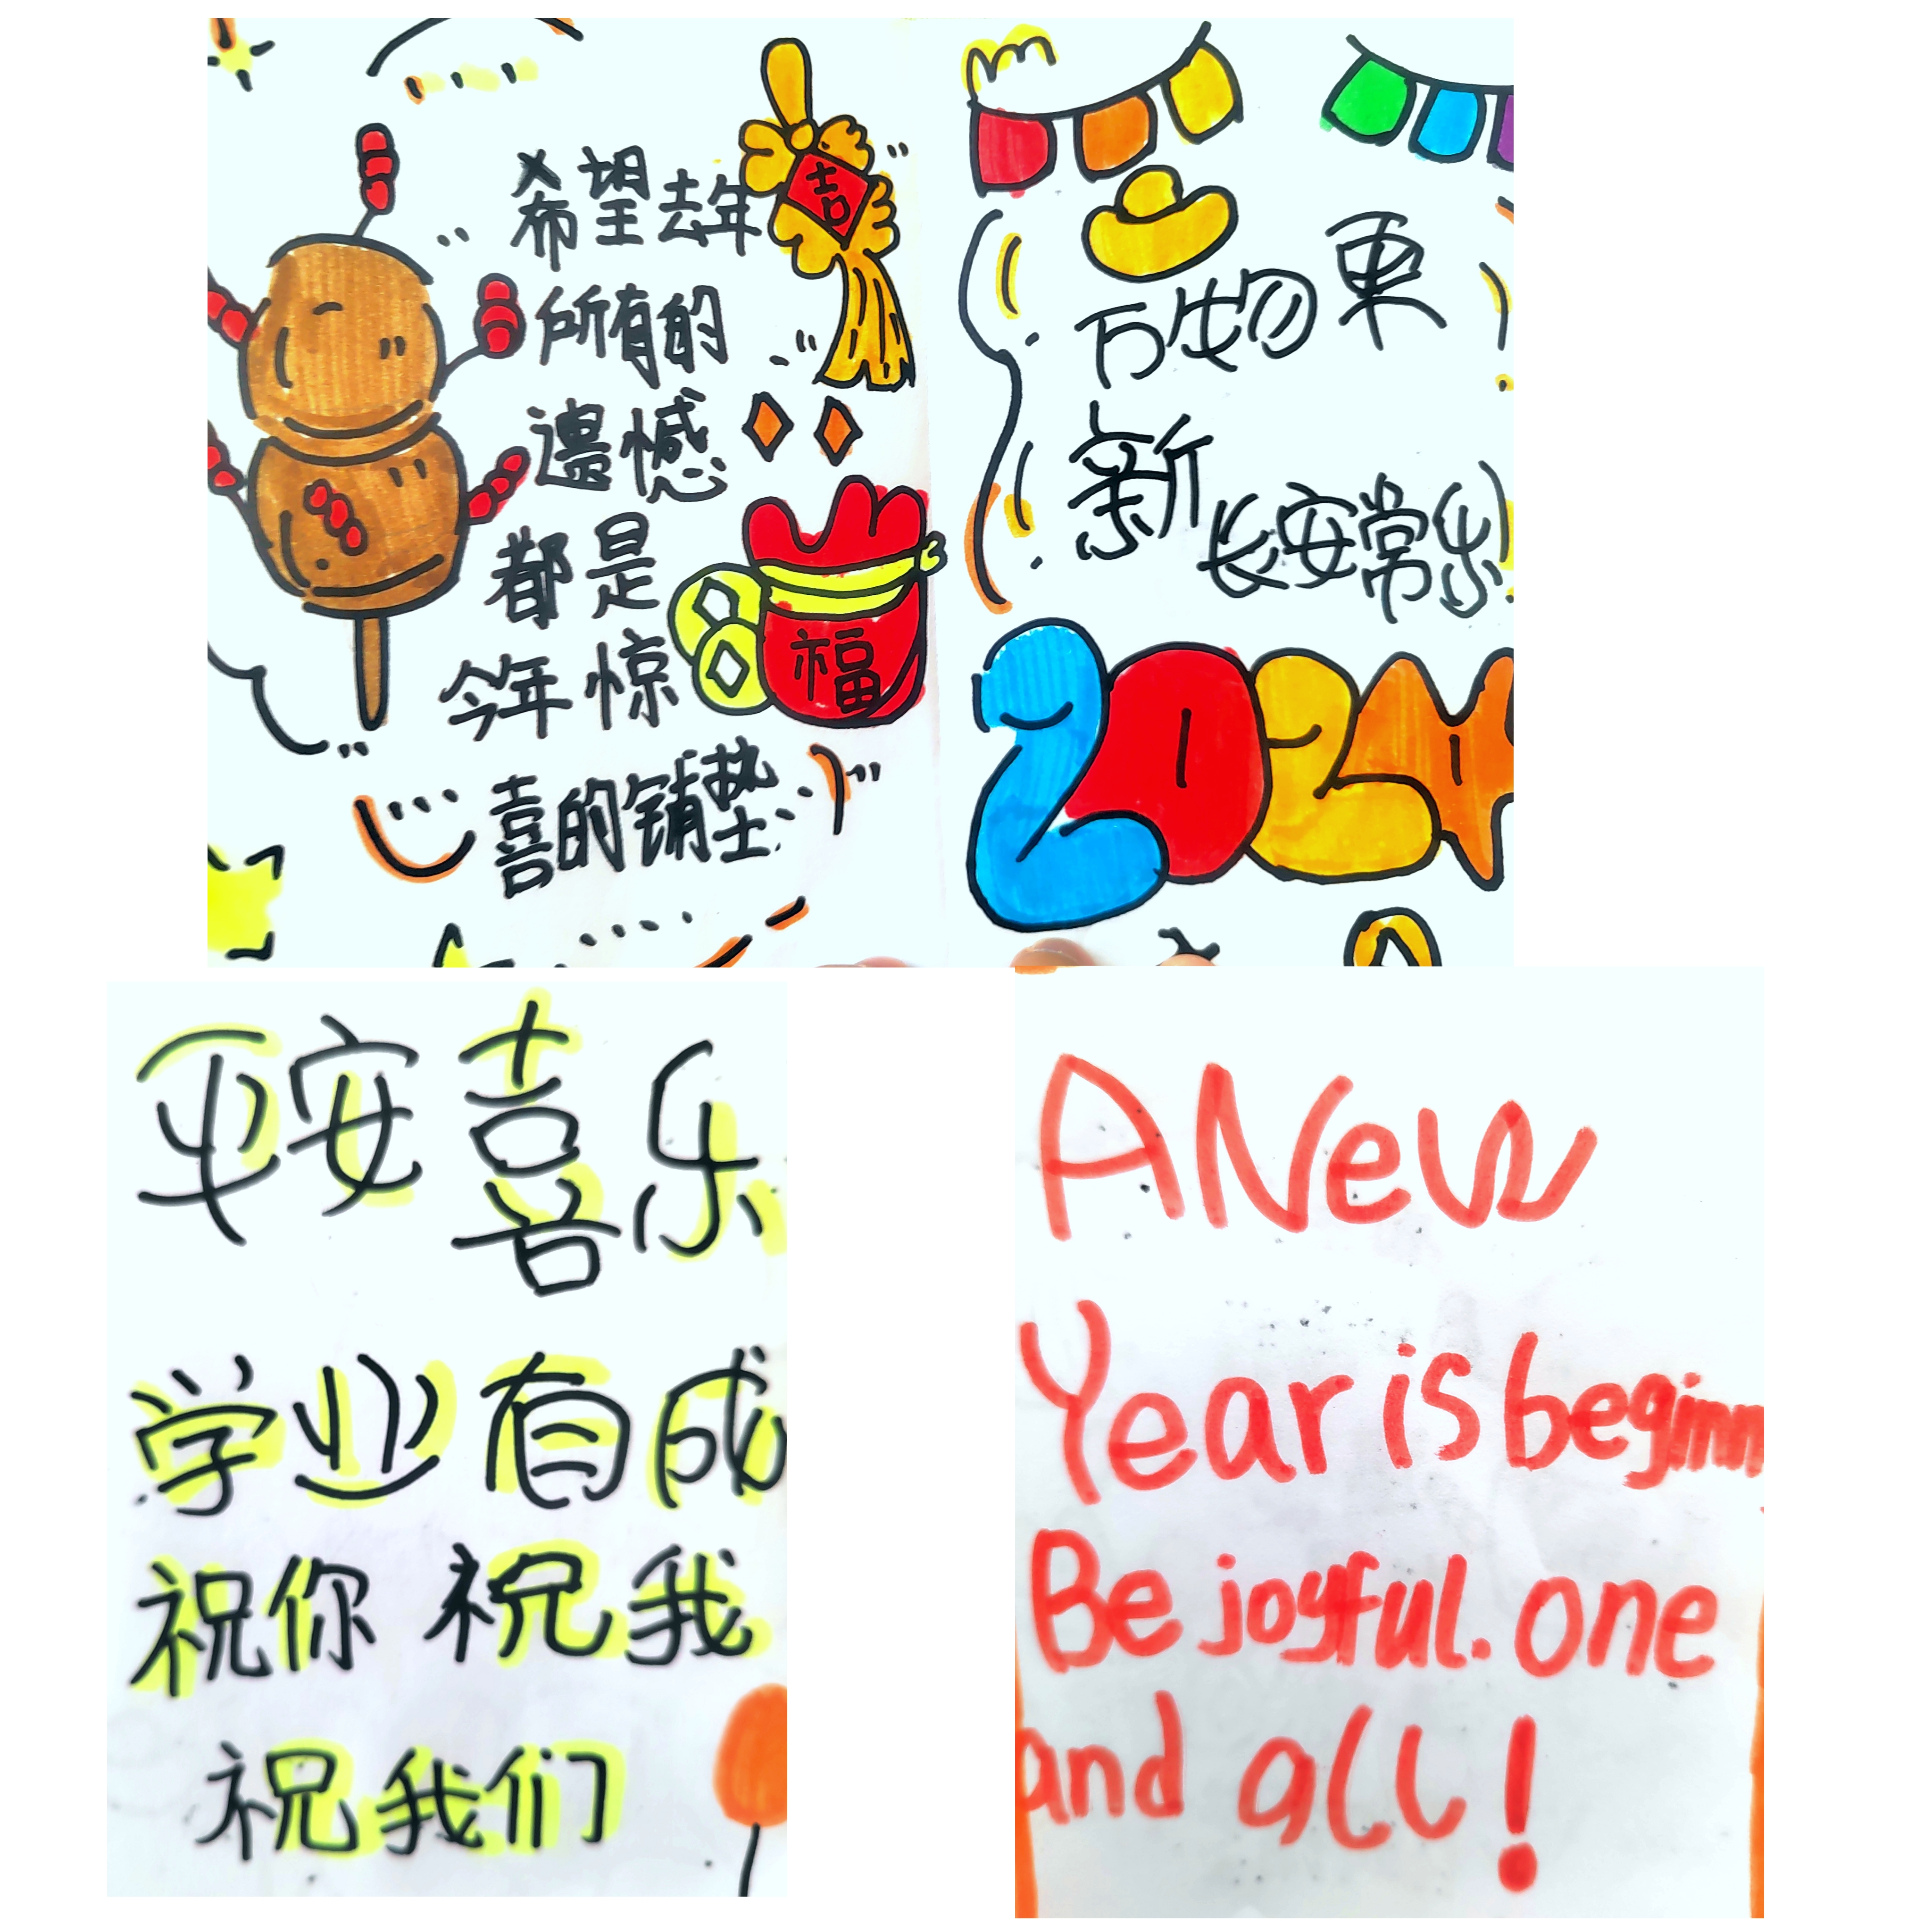 希望去年
所有的
遗憾
都是
今年惊
喜的铺垫
喜
福
万物更
新
长安常乐
2024
平安喜乐
学业有成
祝你 祝我
祝我们
A New
Year is beginn
Be joyful. one
and all!